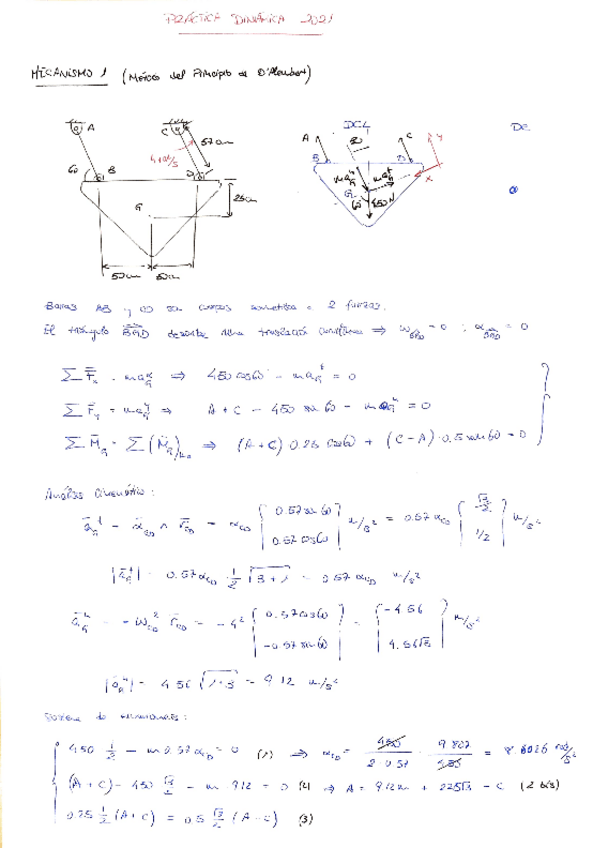 PRÁCTICA DINÁMICA 2021
MECANISMO 1 (Método del Principio de D'Alembert)
A
C
57 cm
4 rad/s
60
B
D
G
25 cm
50 cm
50 cm
DCL
A
C
B
D
G
60
450 N
x
y
DC
Barras AB y CD son cuerpos sometidos a 2 fuerzas.
El triángulo BGD describe una traslación curvilínea ⇒ ω_BGD = 0 ; α_BGD = 0
ΣF̄x = m aGx ⇒ 450 cos60 - m aG^t = 0
ΣF̄y = m aGy ⇒ A + C - 450 sen 60 - m aG^n = 0
ΣM̄G = Σ(M̄G)ko ⇒ (A+C) 0.25 cos60 + (C-A)·0.5 sen60 = 0
Análisis Cinemático:
āG^t = ᾱCD ∧ r̄CD = αCD [0.57 sen 60 0.57 cos60] m/s² = 0.57 αCD [√3/2 1/2] m/s²
|āG^t| = 0.57 αCD · 1/2 √3+1 = 0.57 αCD m/s²
āG^n = -ωCD² r̄CD = -4² [0.57 cos60 -0.57 sen 60] = [-4.56 4.56√3] m/s²
|āG^n| = 4.56 √1+3 = 9.12 m/s²
Sistema de ecuaciones:
450 1/2 - m 0.57 αCD = 0 (1) ⇒ αCD = 450/2·0.57 · 9.807/450 = 8.6026 rad/s²
(A+C) - 450 √3/2 - m 9.12 = 0 (2) ⇒ A = 9.12m + 225√3 - C (2 bis)
0.25 1/2 (A+C) = 0.5 √3/2 (A-C) (3)